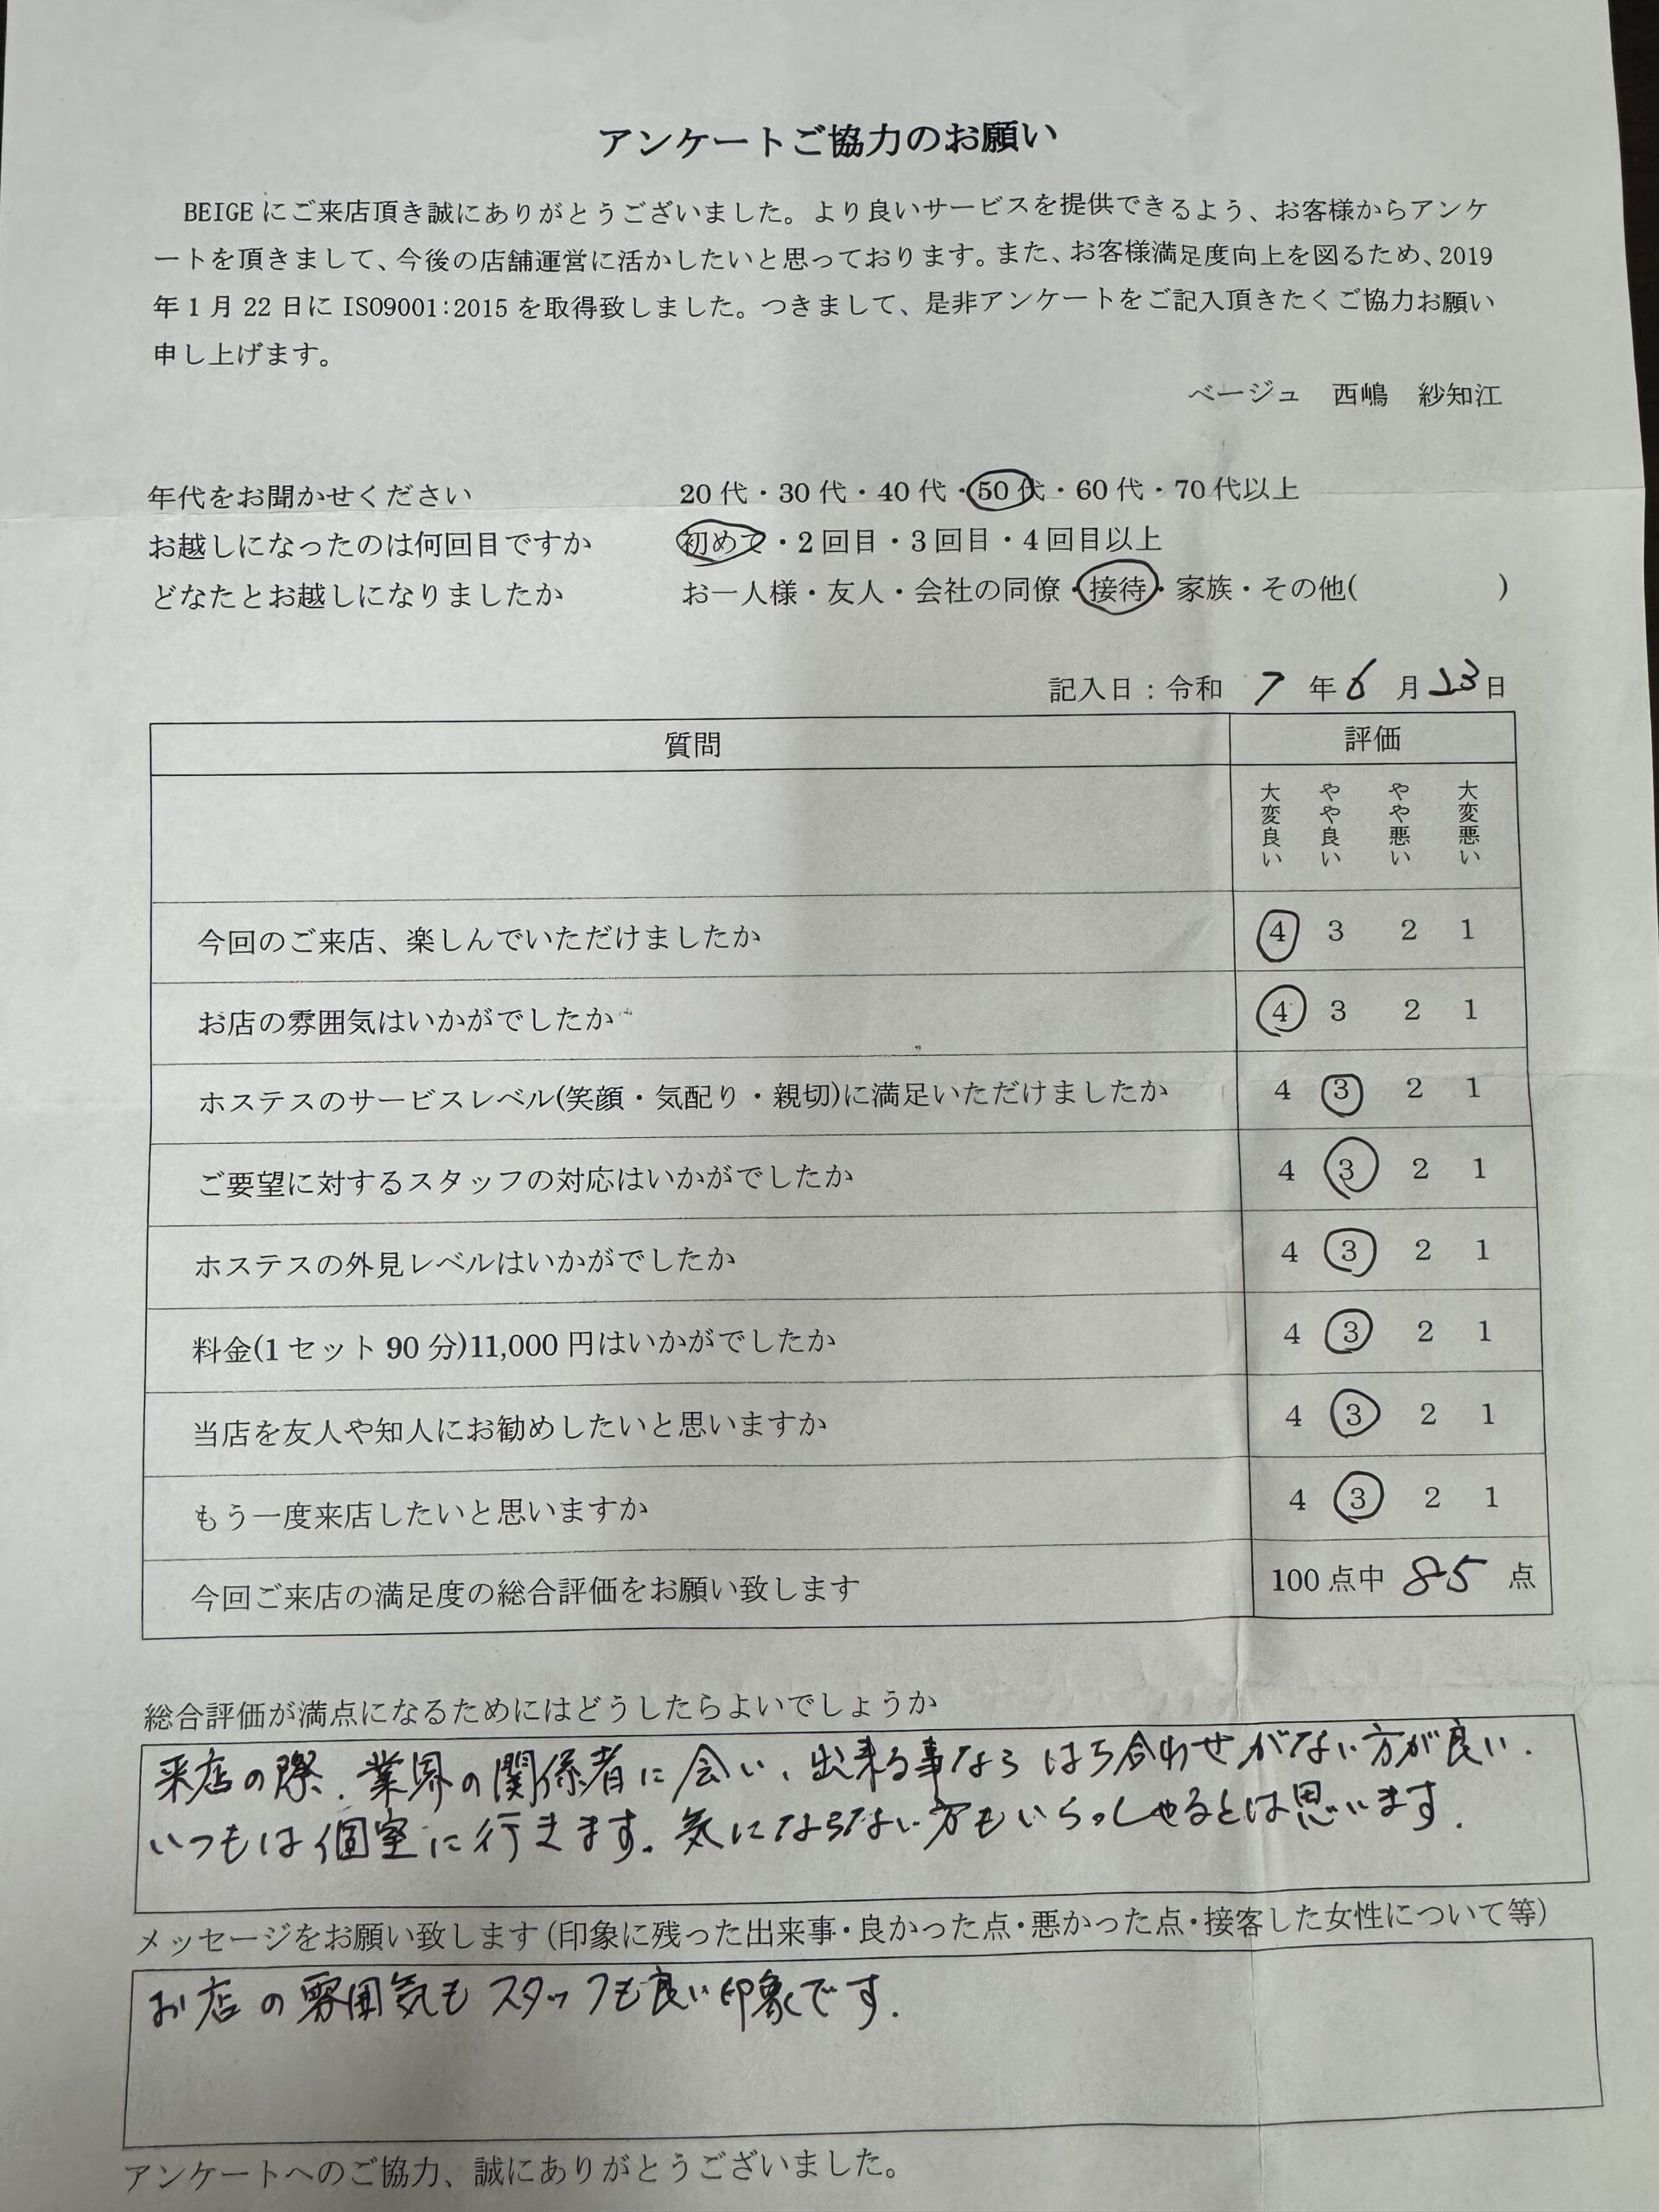 アンケートご協力のお願い
BEIGEにご来店頂き誠にありがとうございました。より良いサービスを提供できるよう、お客様からアンケ
ートを頂きまして、今後の店舗運営に活かしたいと思っております。また、お客様満足度向上を図るため、2019
年1月22日にISO9001:2015を取得致しました。つきまして、是非アンケートをご記入頂きたくご協力お願い
申し上げます。
ベージュ 西嶋 紗知江
年代をお聞かせください 20代・30代・40代・50代・60代・70代以上
お越しになったのは何回目ですか 初めて・2回目・3回目・4回目以上
どなたとお越しになりましたか お一人様・友人・会社の同僚・接待・家族・その他( )
記入日:令和 7 年 6 月 23 日
質問 評価
大変良い やや良い やや悪い 大変悪い
今回のご来店、楽しんでいただけましたか 4 3 2 1
お店の雰囲気はいかがでしたか 4 3 2 1
ホステスのサービスレベル(笑顔・気配り・親切)に満足いただけましたか 4 3 2 1
ご要望に対するスタッフの対応はいかがでしたか 4 3 2 1
ホステスの外見レベルはいかがでしたか 4 3 2 1
料金(1セット90分)11,000円はいかがでしたか 4 3 2 1
当店を友人や知人にお勧めしたいと思いますか 4 3 2 1
もう一度来店したいと思いますか 4 3 2 1
今回ご来店の満足度の総合評価をお願い致します 100点中 85 点
総合評価が満点になるためにはどうしたらよいでしょうか
来店の際、業界の関係者に会い、出来る事なら はち合わせがない方が良い.
いつもは個室に行きます。気にならない方もいらっしゃるとは思います.
メッセージをお願い致します(印象に残った出来事・良かった点・悪かった点・接客した女性について等)
お店の雰囲気もスタッフも良い印象です.
アンケートへのご協力、誠にありがとうございました。